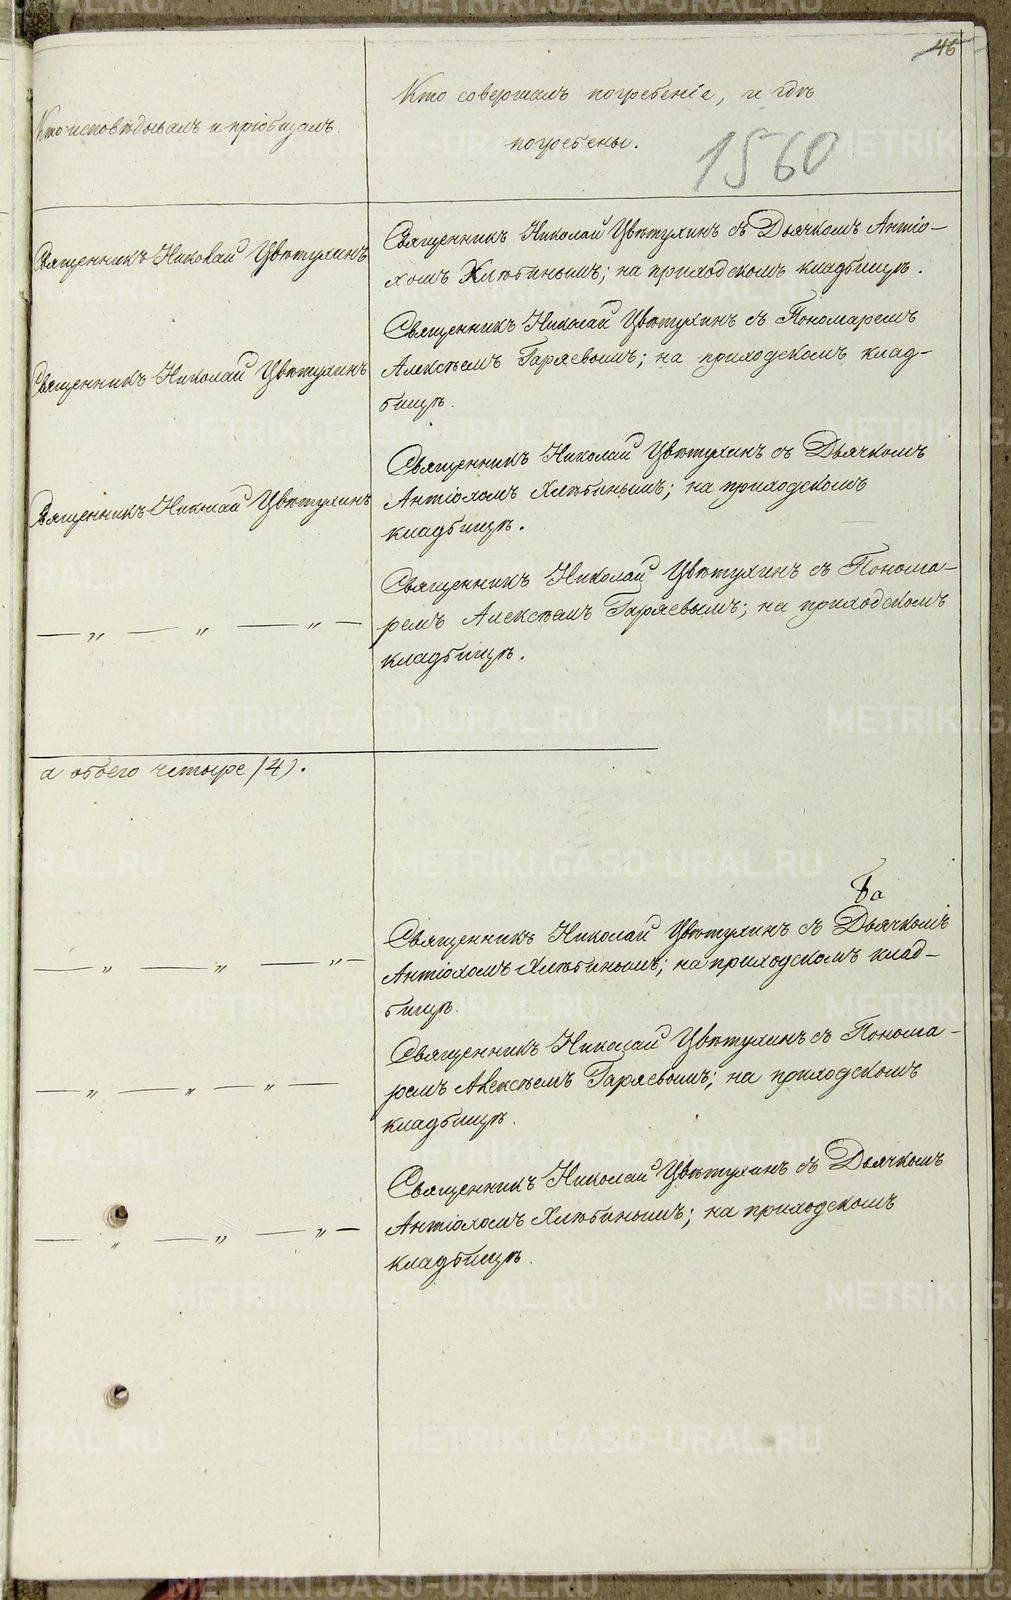 46
Кто исповѣдывалъ и пріобщалъ.
Кто совершалъ погребеніе, и гдѣ
погребены.
1560
Священникъ Николай Цвѣтухинъ
Священникъ Николай Цвѣтухинъ съ Дьячкомъ Антіо-
хомъ Хлѣбинымъ; на приходскомъ кладбищѣ.
Священникъ Николай Цвѣтухинъ
Священникъ Николай Цвѣтухинъ съ Пономаремъ
Алексѣемъ Гаряевымъ; на приходскомъ клад-
бищѣ.
Священникъ Николай Цвѣтухинъ
Священникъ Николай Цвѣтухинъ съ Дьячкомъ
Антіохомъ Хлѣбинымъ; на приходскомъ
кладбищѣ.
— „ — „ — „ —
Священникъ Николай Цвѣтухинъ съ Понома-
ремъ Алексѣемъ Гаряевымъ; на приходскомъ
кладбищѣ.
а обоего четыре (4).
— „ — „ — „ —
Священникъ Николай Цвѣтухинъ съ Дьячкомъ
Антіохомъ Хлѣбинымъ; на приходскомъ клад-
бищѣ.
— „ — „ — „ —
Священникъ Николай Цвѣтухинъ съ Понома-
ремъ Алексѣемъ Гаряевымъ; на приходскомъ
кладбищѣ.
— „ — „ — „ —
Священникъ Николай Цвѣтухинъ съ Дьячкомъ
Антіохомъ Хлѣбинымъ; на приходскомъ
кладбищѣ.
METRIKI.GASO-URAL.RU